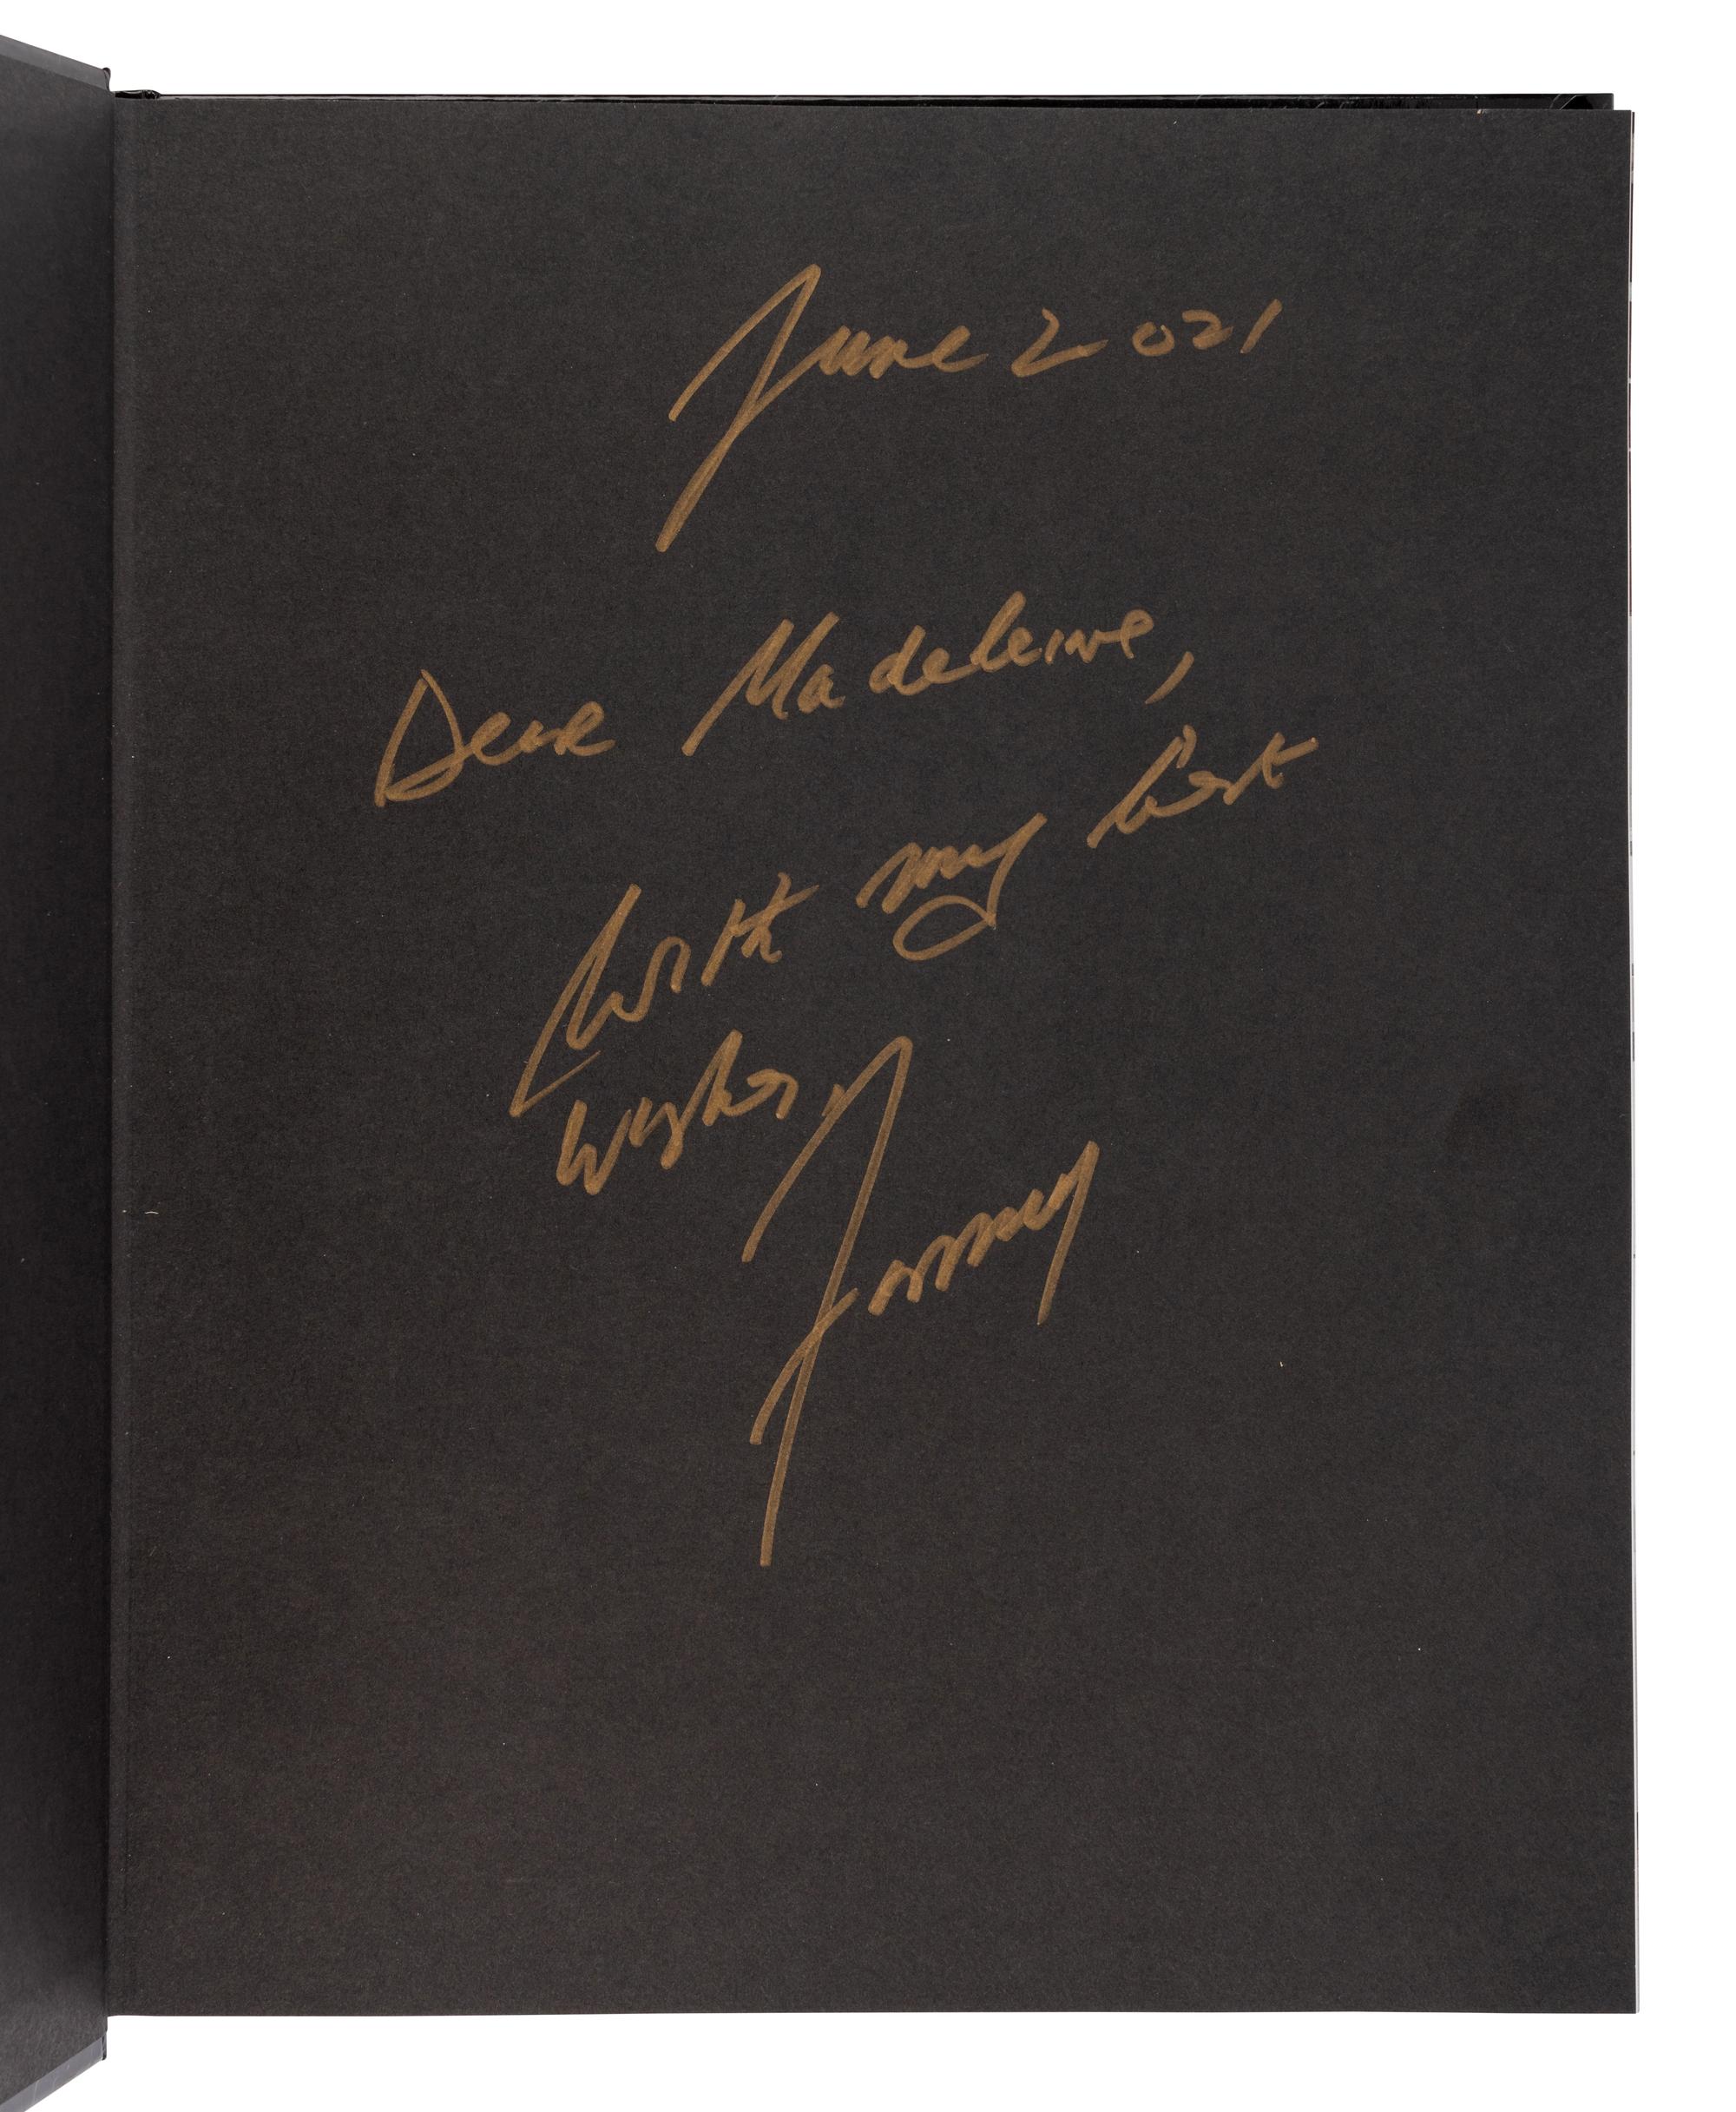 June 2021
Dear Madeleine,
With my best
wishes,
Tommy